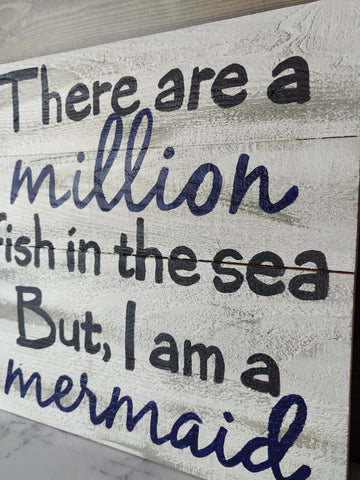 There are a
million
fish in the sea
But, I am a
mermaid